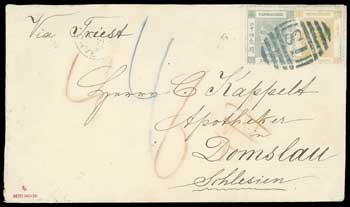 Via Triest
Herrn C. Kappelt
Apotheker
in
Domslau
Schlesien